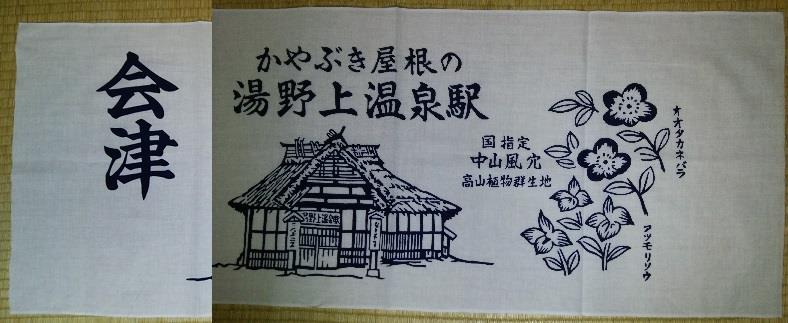 会津
かやぶき屋根の
湯野上温泉駅
国指定
中山風穴
高山植物群生地
オオタカネバラ
アツモリソウ
湯野上温泉駅